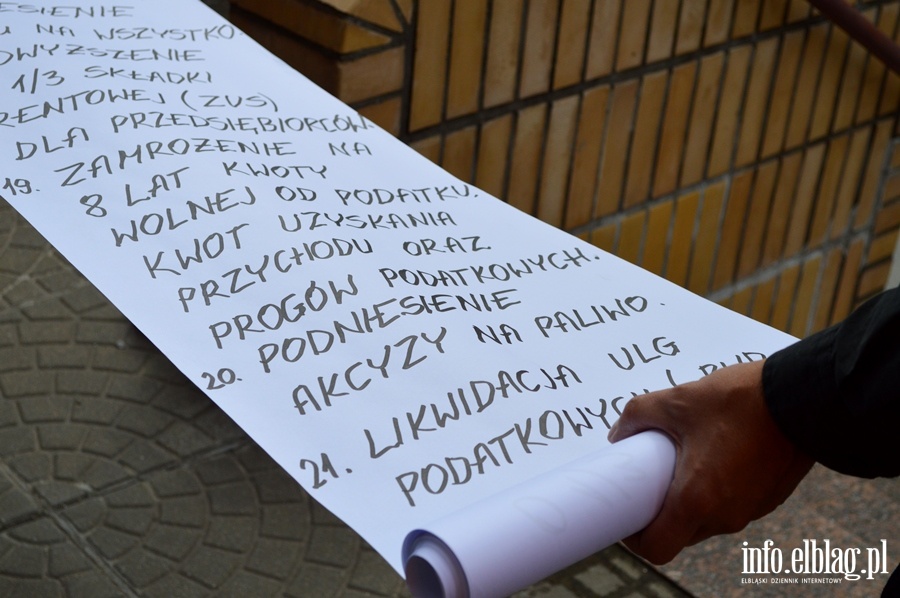 NA WSZYSTKO
1/3 SKŁADKI
RENTOWEJ (ZUS)
DLA PRZEDSIĘBIORCÓW.
19. ZAMROŻENIE NA
8 LAT KWOTY
WOLNEJ OD PODATKU.
KWOT UZYSKANIA
PRZYCHODU ORAZ
PROGÓW PODATKOWYCH.
20. PODNIESIENIE
AKCYZY NA PALIWO.
21. LIKWIDACJA ULG
PODATKOWYCH (
info.elblag.pl
ELBLĄSKI DZIENNIK INTERNETOWY